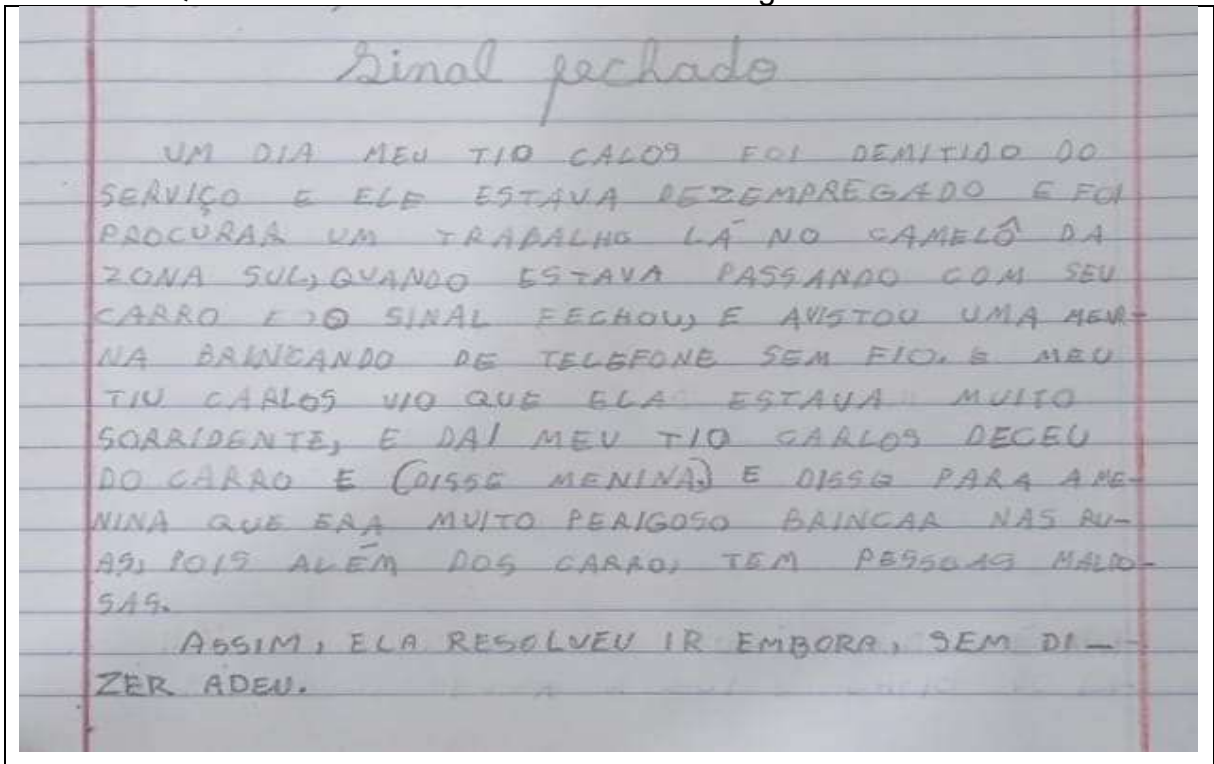 Sinal fechado
UM DIA MEU TIO CALOS FOI DEMITIDO DO
SERVIÇO E ELE ESTAVA DEZEMPREGADO E FOI
PROCURAR UM TRABALHO LÁ NO CAMELÔ DA
ZONA SUL, QUANDO ESTAVA PASSANDO COM SEU
CARRO E O SINAL FECHOU, E AVISTOU UMA MENI-
NA BRINCANDO DE TELEFONE SEM FIO. E MEU
TIU CARLOS VIO QUE ELA ESTAVA MUITO
SORRIDENTE, E DAÍ MEU TIO CARLOS DECEU
DO CARRO E (DISSE MENINA) E DISSE PARA A ME-
NINA QUE ERA MUITO PERIGOSO BRINCAR NAS RU-
AS, POIS ALÉM DOS CARRO, TEM PESSOAS MALDO-
SAS.
ASSIM, ELA RESOLVEU IR EMBORA, SEM DI-
ZER ADEU.